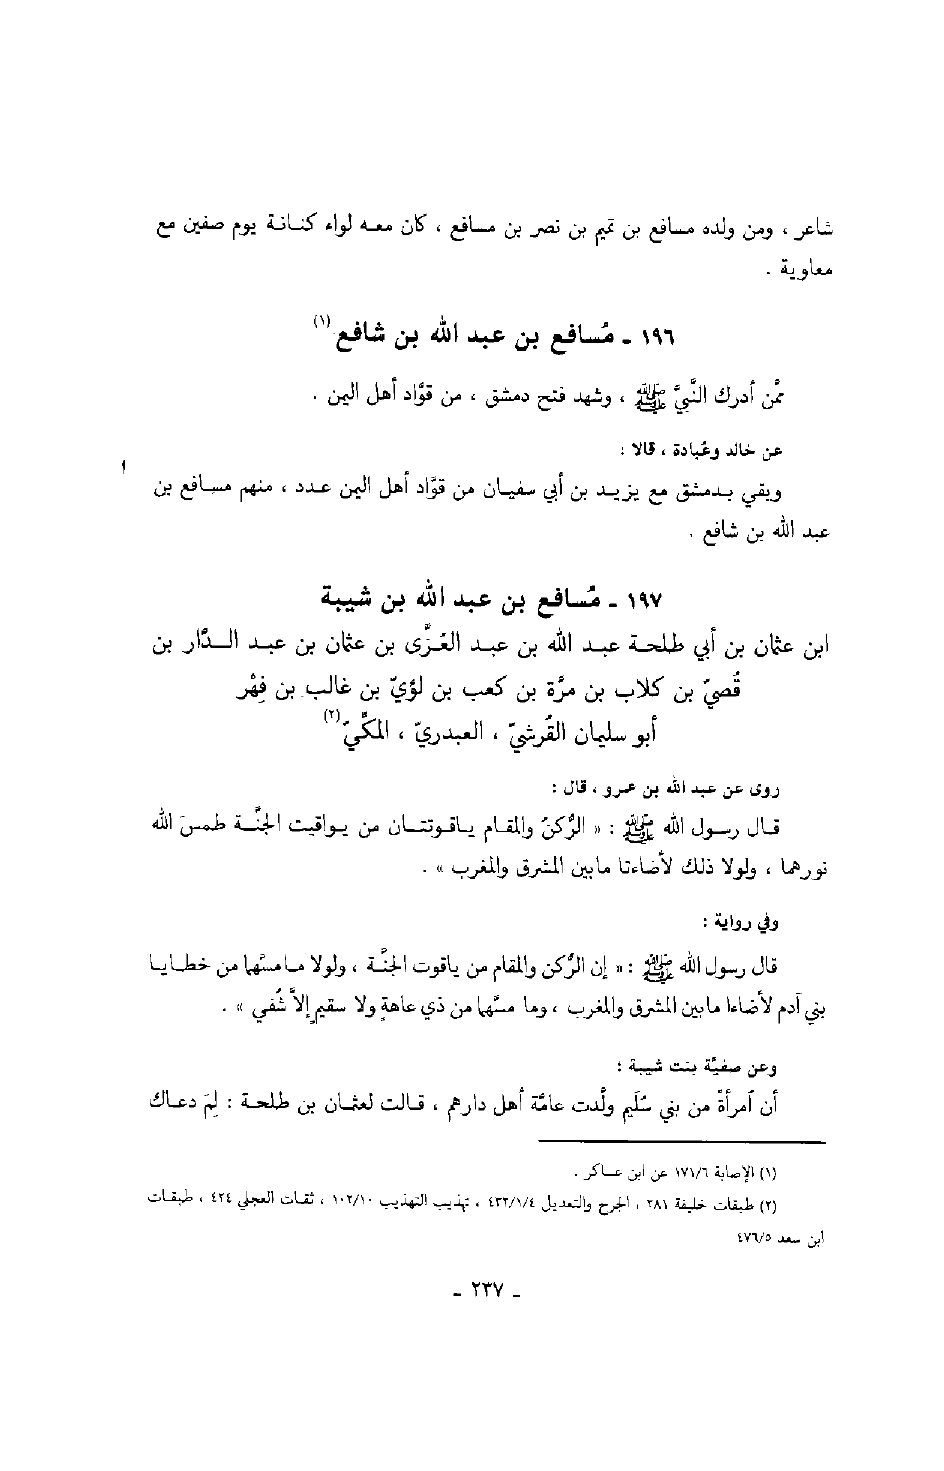 شاعر ، ومن ولده مسافع بن تميم بن نصر بن مسافع ، كان معه لواء كنانة يوم صفين مع
معاوية .
١٩٦ ـ مُسافع بن عبد الله بن شافع(١)
ممَّن أدرك النَّبيَّ ﷺ ، وشهد فتح دمشق ، من قوَّاد أهل اليمن .
عن خالد وعُبادة ، قالا :
وبقي بدمشق مع يزيد بن أبي سفيان من قوَّاد أهل اليمن عدد ، منهم مسافع بن
عبد الله بن شافع .
١٩٧ ـ مُسافع بن عبد الله بن شيبة
ابن عثمان بن أبي طلحة عبد الله بن عبد العُزَّى بن عثمان بن عبد الدَّار بن
قُصيّ بن كلاب بن مرَّة بن كعب بن لؤيّ بن غالب بن فِهْر
أبو سليمان القُرشيّ ، العبدريّ ، المكِّيّ(٢)
روى عن عبد الله بن عمرو ، قال :
قال رسول الله ﷺ : « الرُّكنُ والمقام ياقوتتان من يواقيت الجنَّة طمسَ الله
نورهما ، ولولا ذلك لأضاءتا مابين المشرق والمغرب » .
وفي رواية :
قال رسول الله ﷺ : « إن الرُّكن والمقام من ياقوت الجنَّة ، ولولا مامسَّهما من خطايا
بني آدم لأضاءا مابين المشرق والمغرب ، وما مسَّهما من ذي عاهةٍ ولا سقيمٍ إلاَّ شُفي » .
وعن صفيَّة بنت شيبة :
أن أمرأةً من بني سُلَيم ولَّدت عامَّة أهل دارهم ، قالت لعثمان بن طلحة : لِمَ دعاك
(١) الإصابة ١٧١/٦ عن ابن عساكر .
(٢) طبقات خليفة ٢٨١ ، الجرح والتعديل ٤٣٢/١/٤ ، تهذيب التهذيب ١٠٢/١٠ ، ثقات العجلي ٤٢٤ ، طبقات
ابن سعد ٤٧٦/٥
ـ ٢٣٧ ـ